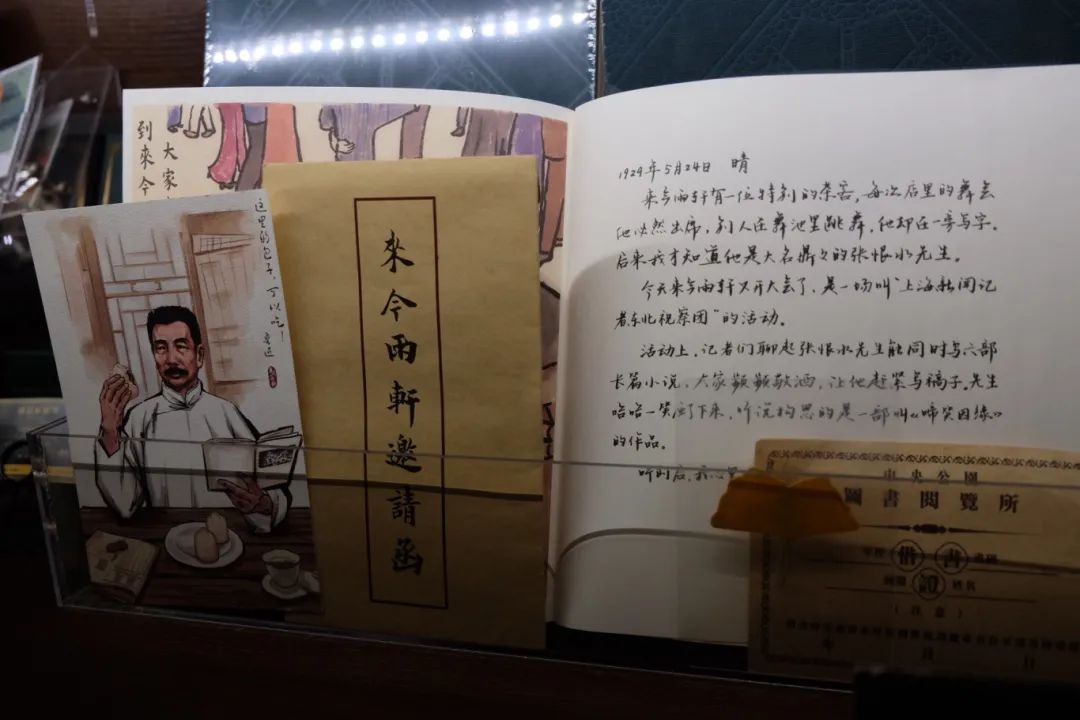 大家
到來今
这里的包子，可以吃！
鲁迅
來今雨軒邀請函
1929年5月24日 晴
来今雨轩有一位特别的茶客，每次店里的舞会
他必然出席，别人在舞池里跳舞，他却在一旁写字。
后来我才知道他是大名鼎々的张恨水先生。
今天来今雨轩又开大会了，是一场叫“上海新闻记
者东北视察团”的活动。
活动上，记者们聊起张恨水先生能同时写六部
长篇小说，大家频频敬酒，让他赶紧写稿子。先生
哈哈一笑应下来，听说构思的是一部叫《啼笑因缘》
的作品。
听到后，我心里
中央公園
圖書閱覽所
借書
證
姓名
（注意）
年 月 日